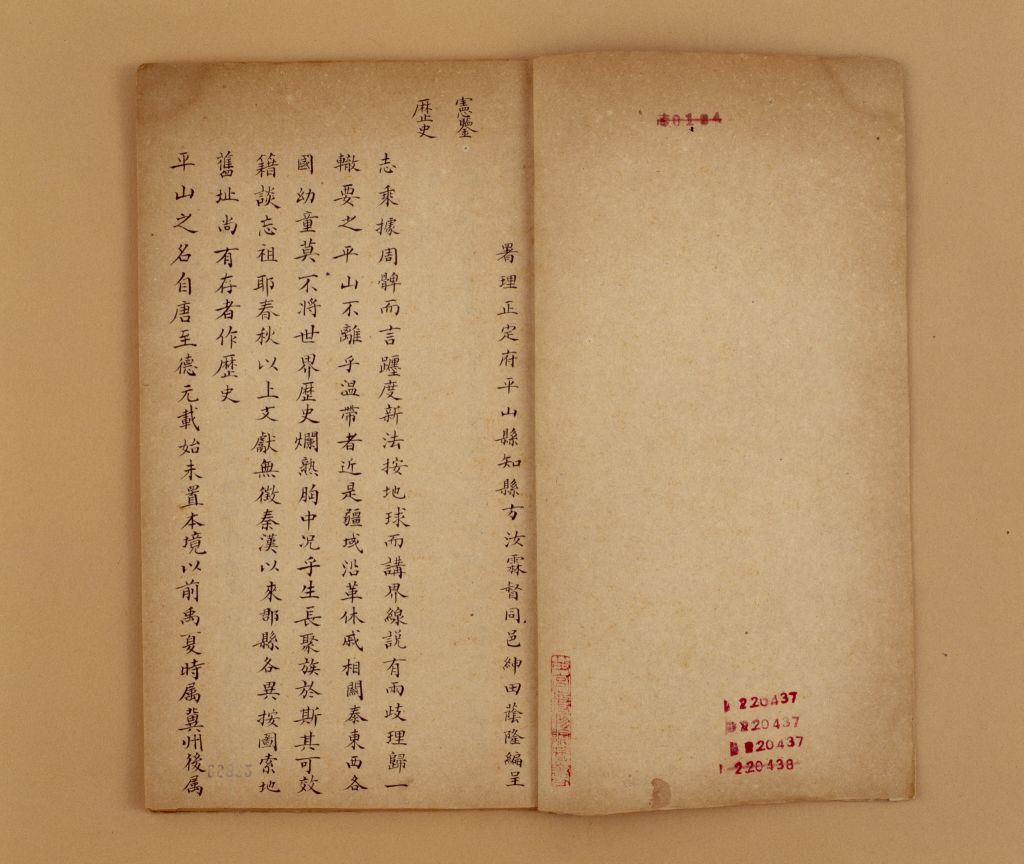 署理正定府平山縣知縣方汝霖督同邑紳田蔭隆編呈
憲鑒
歷史
志乘據周髀而言躔度新法按地球而講界線説有兩歧理歸一
轍要之平山不離乎溫帶者近是疆域沿革休戚相關泰東西各
國幼童莫不將世界歷史爛熟胸中况乎生長聚族於斯其可效
籍談忘祖耶春秋以上文獻無徵秦漢以來郡縣各異按圖索地
舊址尚有存者作歷史
平山之名自唐至德元載始未置本境以前禹夏時属冀州後属
220437
220437
220437
220438